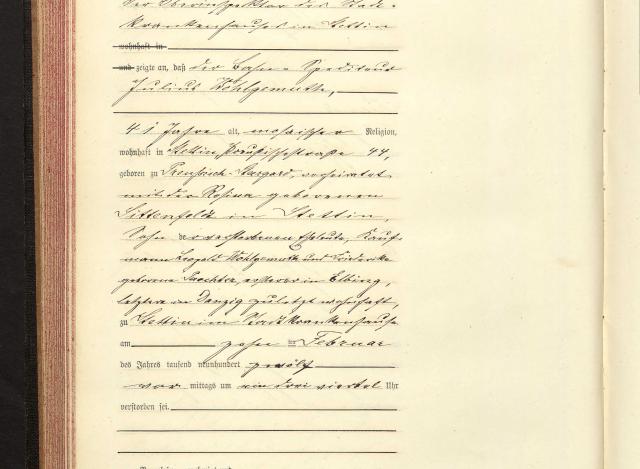 Der Oberinspektor des Stadt-
krankenhauses in Stettin
wohnhaft in
und zeigte an, daß der Bahn-Spediteur
Julius Wohlgemuth,
41 Jahre alt, mosaischer Religion,
wohnhaft in Stettin, Preußischestraße 44,
geboren zu Preußisch-Stargard, verheiratet
mit der Rosina geborenen
Littenfeld in Stettin,
Sohn der verstorbenen Eheleute, Kauf-
mann Leopold Wohlgemuth und Friederike
geborene ersterer in Elbing,
letztere in Danzig zuletzt wohnhaft,
zu Stettin im Stadtkrankenhause
am zehn ten Februar
des Jahres tausend neunhundert zwölf
vor mittags um ein drei viertel Uhr
verstorben sei.